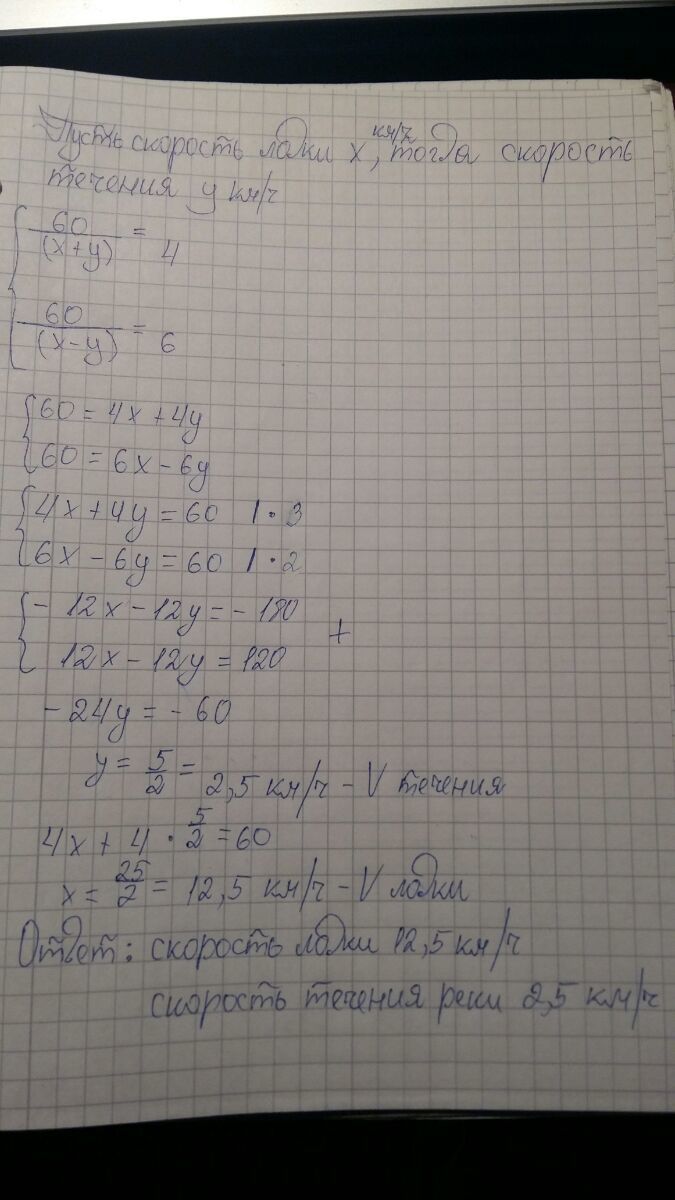 Пусть скорость лодки x км/ч, тогда скорость
течения y км/ч
60/(x+y) = 4
60/(x-y) = 6
60 = 4x + 4y
60 = 6x - 6y
4x + 4y = 60 | · 3
6x - 6y = 60 | · 2
- 12x - 12y = - 180 +
12x - 12y = 120
- 24y = - 60
y = 5/2 = 2,5 км/ч - V течения
4x + 4 · 5/2 = 60
x = 25/2 = 12,5 км/ч - V лодки
Ответ: скорость лодки 12,5 км/ч
скорость течения реки 2,5 км/ч